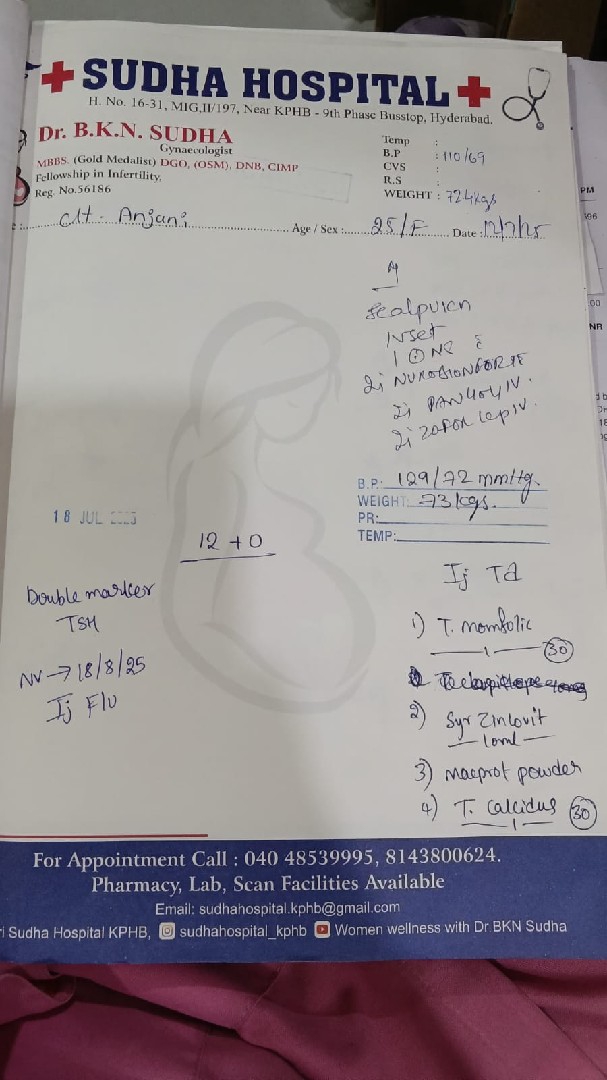 SUDHA HOSPITAL
H. No. 16-31, MIG,II/197, Near KPHB - 9th Phase Busstop, Hyderabad.
Dr. B.K.N. SUDHA
Gynaecologist
MBBS. (Gold Medalist) DGO, (OSM), DNB, CIMP
Fellowship in Infertility,
Reg. No.56186
Temp :
B.P : 110/69
CVS :
R.S :
WEIGHT : 72.4kgs
Anjani Age / Sex : 25/F Date :
1 NS
PAN 40 IV.
B.P: 129/72 mmHg.
WEIGHT: 73 kgs.
PR:
TEMP:
18 JUL
12 + 0
Double marker
TSH
NV → 18/8/25
Ij F/U
Ij Td
1) T. momfolic
1 30
2) Syr Zincovit
10ml
3) macprot powder
4) T. calcidus 30
1
For Appointment Call : 040 48539995, 8143800624.
Pharmacy, Lab, Scan Facilities Available
Email: sudhahospital.kphb@gmail.com
Sudha Hospital KPHB, sudhahospital_kphb Women wellness with Dr BKN Sudha